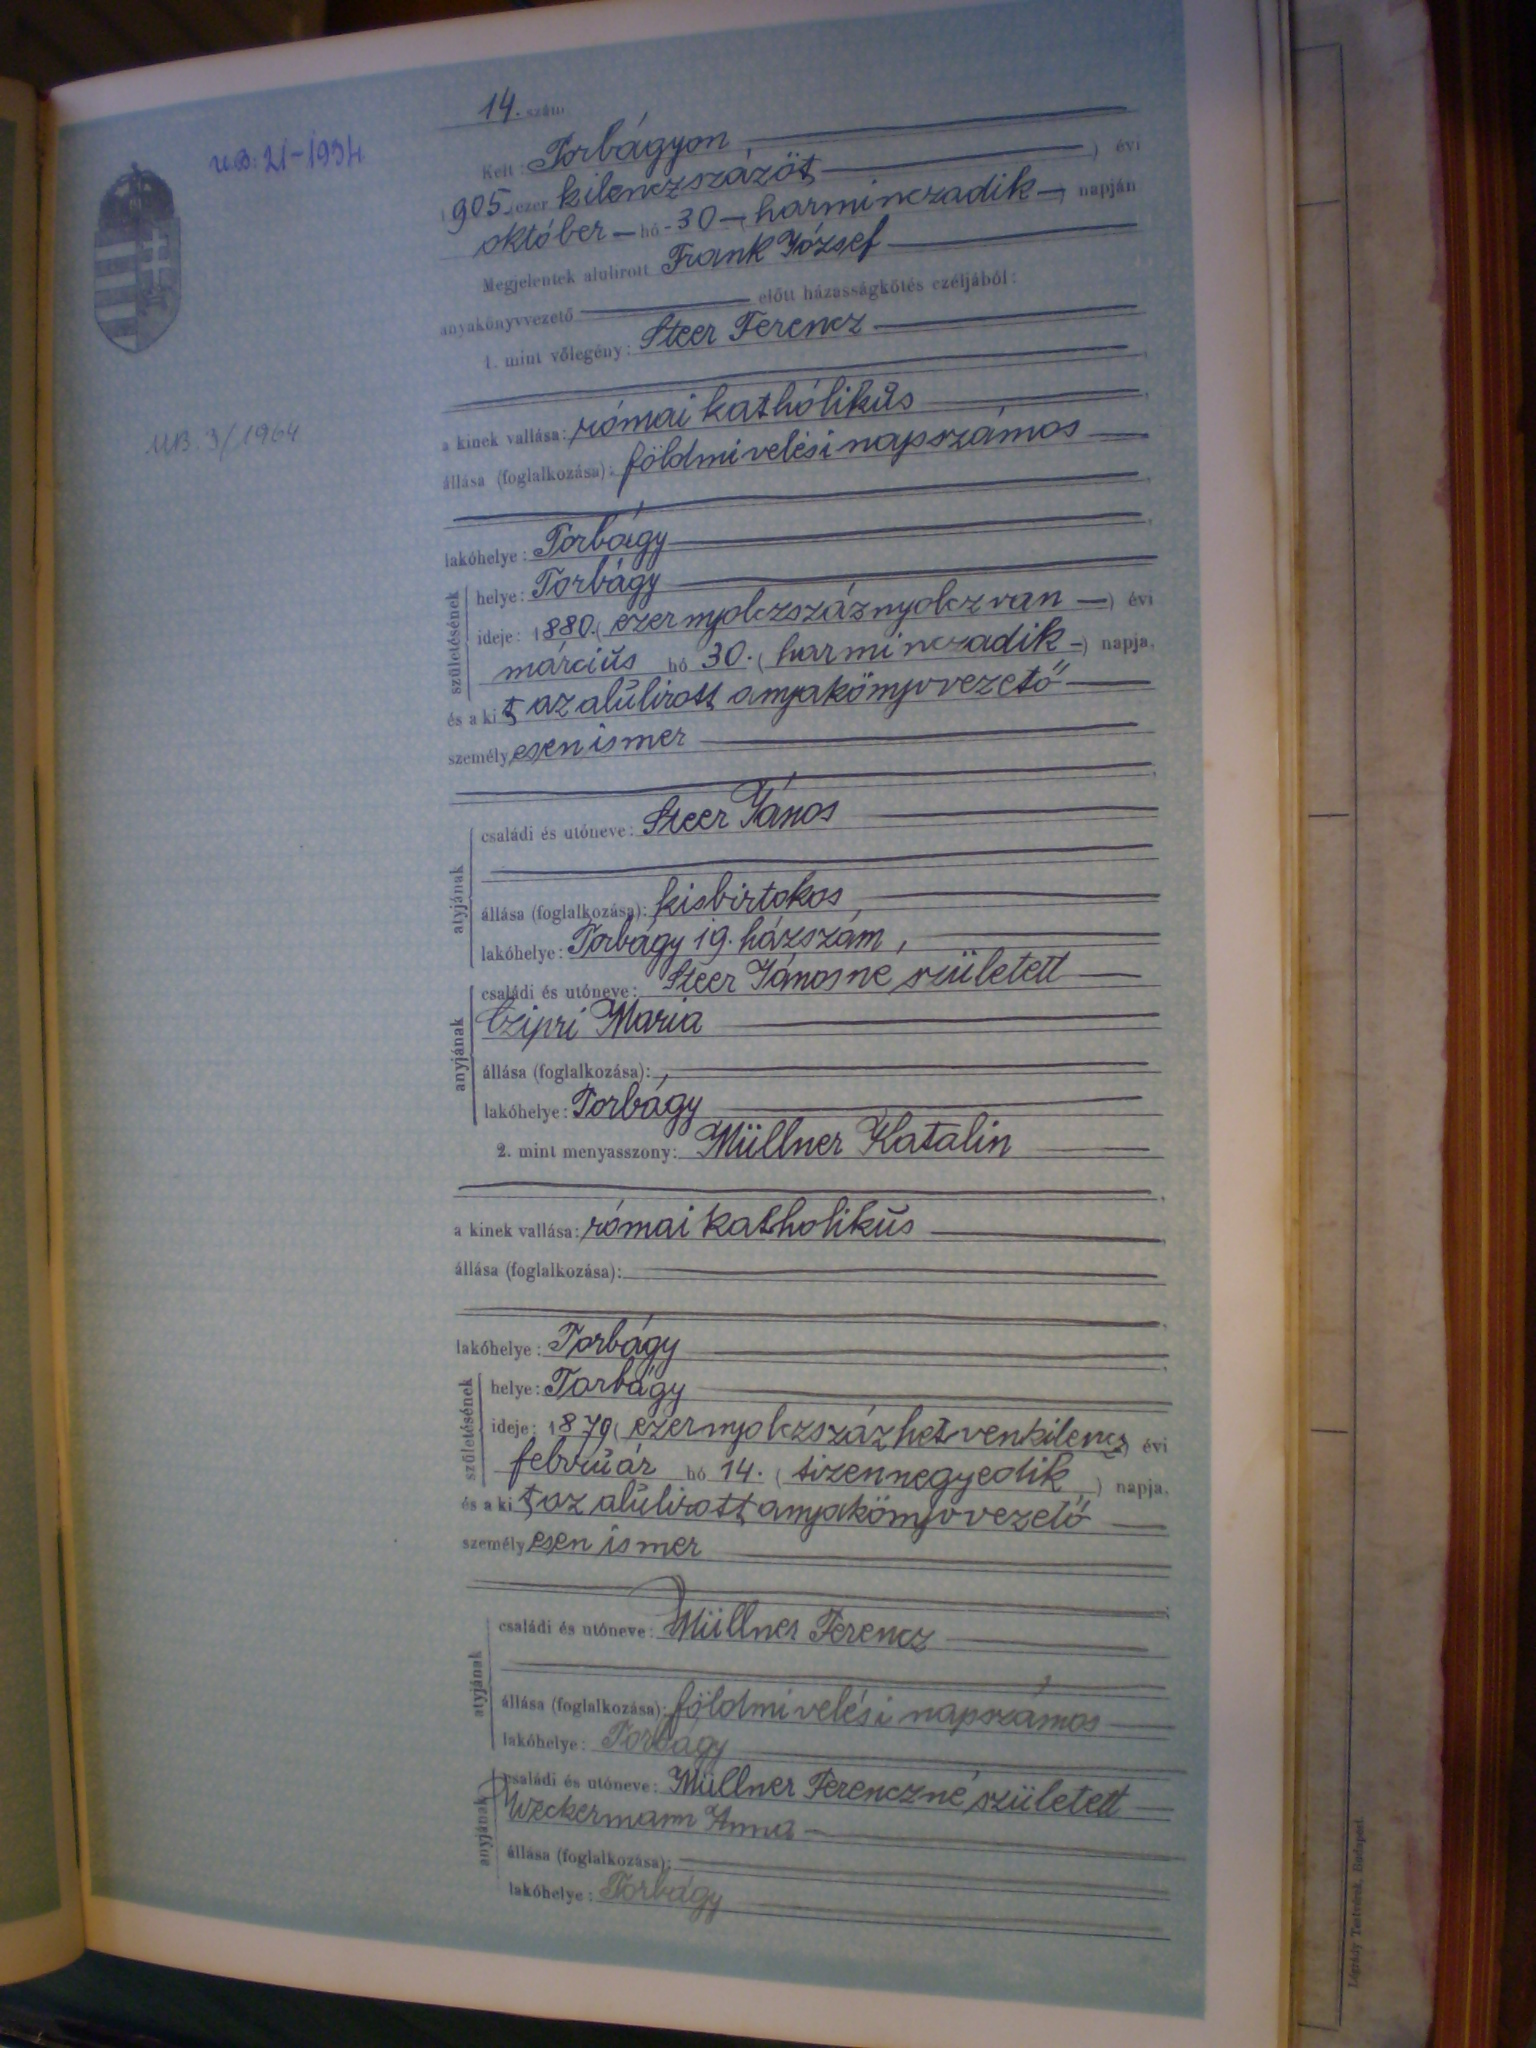 14. szám
U.B: 21-1934
Kelt: Torbágyon,
1905. (ezer kilenczszázöt) évi
október hó 30 (harminczadik) napján
Megjelentek alulirott Frank József
anyakönyvvezető előtt házasságkötés czéljából:
1. mint vőlegény: Steer Ferencz
UB 3/1964
a kinek vallása: római kathólikus
állása (foglalkozása): földmivelési napszámos
lakóhelye: Torbágy
születésének
helye: Torbágy
ideje: 1880. (ezernyolczszáznyolczvan) évi
március hó 30. (harminczadik) napja,
és a kit az alulirott anyakönyvvezető
személyesen ismer
atyjának
családi és utóneve: Steer János
állása (foglalkozása): kisbirtokos,
lakóhelye: Torbágy 19. házszám,
anyjának
családi és utóneve: Steer Jánosné született
Czipri Maria
állása (foglalkozása):
lakóhelye: Torbágy
2. mint menyasszony: Müllner Katalin
a kinek vallása: római katholikus
állása (foglalkozása):
lakóhelye: Torbágy
születésének
helye: Torbágy
ideje: 1879 (ezernyolczszázhetvenkilencz) évi
február hó 14. (tizennegyedik) napja,
és a kit az alulirott anyakönyvvezető
személyesen ismer
atyjának
családi és utóneve: Müllner Ferencz
állása (foglalkozása): földmivelési napszámos
lakóhelye: Torbágy
anyjának
családi és utóneve: Müllner Ferenczné született
Weckermann Anna
állása (foglalkozása):
lakóhelye: Torbágy
Légrády Testvérek, Budapest.